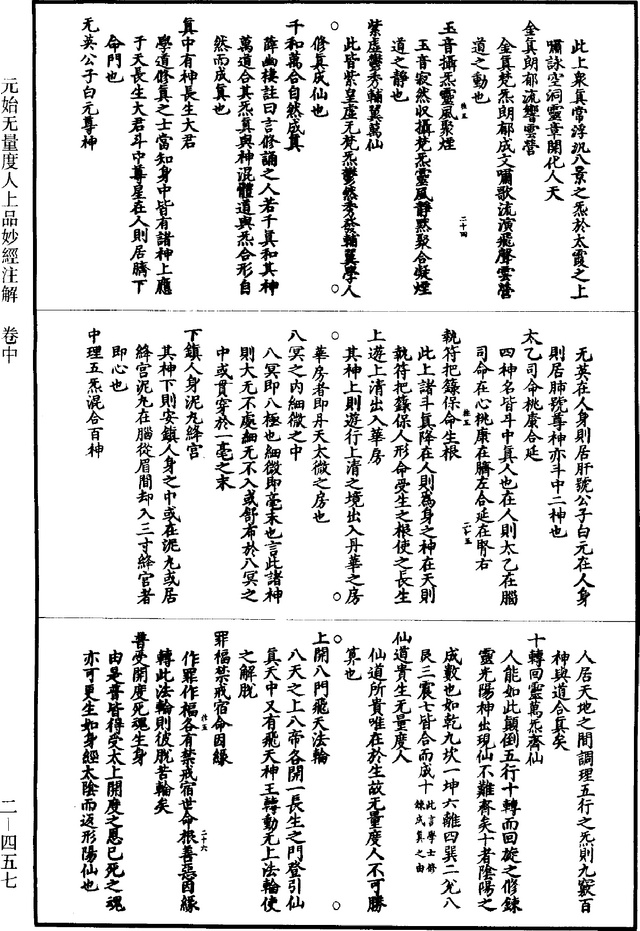 元始无量度人上品妙經注解 卷中
二—四五七
此上衆真常浮汎八景之炁於太霞之上
嘯詠空洞靈章開化人天
金真朗郁流響雲營
金真梵炁朗郁成文嘯歌流演飛聲雲營
道之動也
玉音攝炁靈風聚煙
玉音寂然収攝梵炁靈風靜黙聚合凝煙
道之靜也
二十四
紫虚欝秀輔翼萬仙
此皆紫皇虚无梵炁欝然秀發輔翼學人
修真成仙也
千和萬合自然成真
薛幽棲註曰言修誦之人若千真和其神
萬道合其炁真與神混體道與炁合形自
然而成真也
真中有神長生大君
學道修真之士當知身中皆有諸神上應
于天長生大君斗中尊星在人則居臍下
命門也
无英公子白元尊神
无英在人身則居肝號公子白元在人身
則居肺號尊神亦斗中二神也
太乙司命桃康合延
四種名皆斗中真人也在人則太乙在腦
司命在心桃康在臍左合延在腎右
執符把籙保命生根
二十五
此上諸斗真降在人則爲身之神在天則
執符把籙保人形命受生之根使之長生
上遊上清出入華房
其神上則遊行上清之境出入丹華之房
華房者即丹天太微之房也
八冥之内細微之中
八冥即八極也細微即毫末也言此諸神
則大无不處細无不入或舒布於八冥之
中或貫穿於一毫之末
下鎮人身泥丸絳宫
其神下則安鎮人身之中或在泥丸或居
絳宫泥丸在腦從眉間却入三寸絳宫者
即心也
中理五炁混合百神
人居天地之間調理五行之炁則九竅百
神與道合真矣
十轉回靈萬炁齊仙
人能如此顛倒五行十轉而回旋之修鍊
靈光陽神出現仙不難齊矣十者陰陽之
成數也如乾九坎一坤六離四巽二兊八
艮三震七皆合而成十此言學士修鍊成真之由
仙道貴生无量度人
仙道所貴唯在於生故无量度人不可勝
算也
上開八門飛天法輪
八天之上八帝各開一長生之門登引仙
真天中又有飛天神王轉動无上法輪使
之解脫
罪福禁戒宿命因緣
二十六
作罪作福各有禁戒宿世命根善惡因緣
轉此法輪則彼脫苦輪矣
普受開度死魂生身
由是普皆得受太上開度之恩已死之魂
亦可更生如身經太陰而返形陽仙也